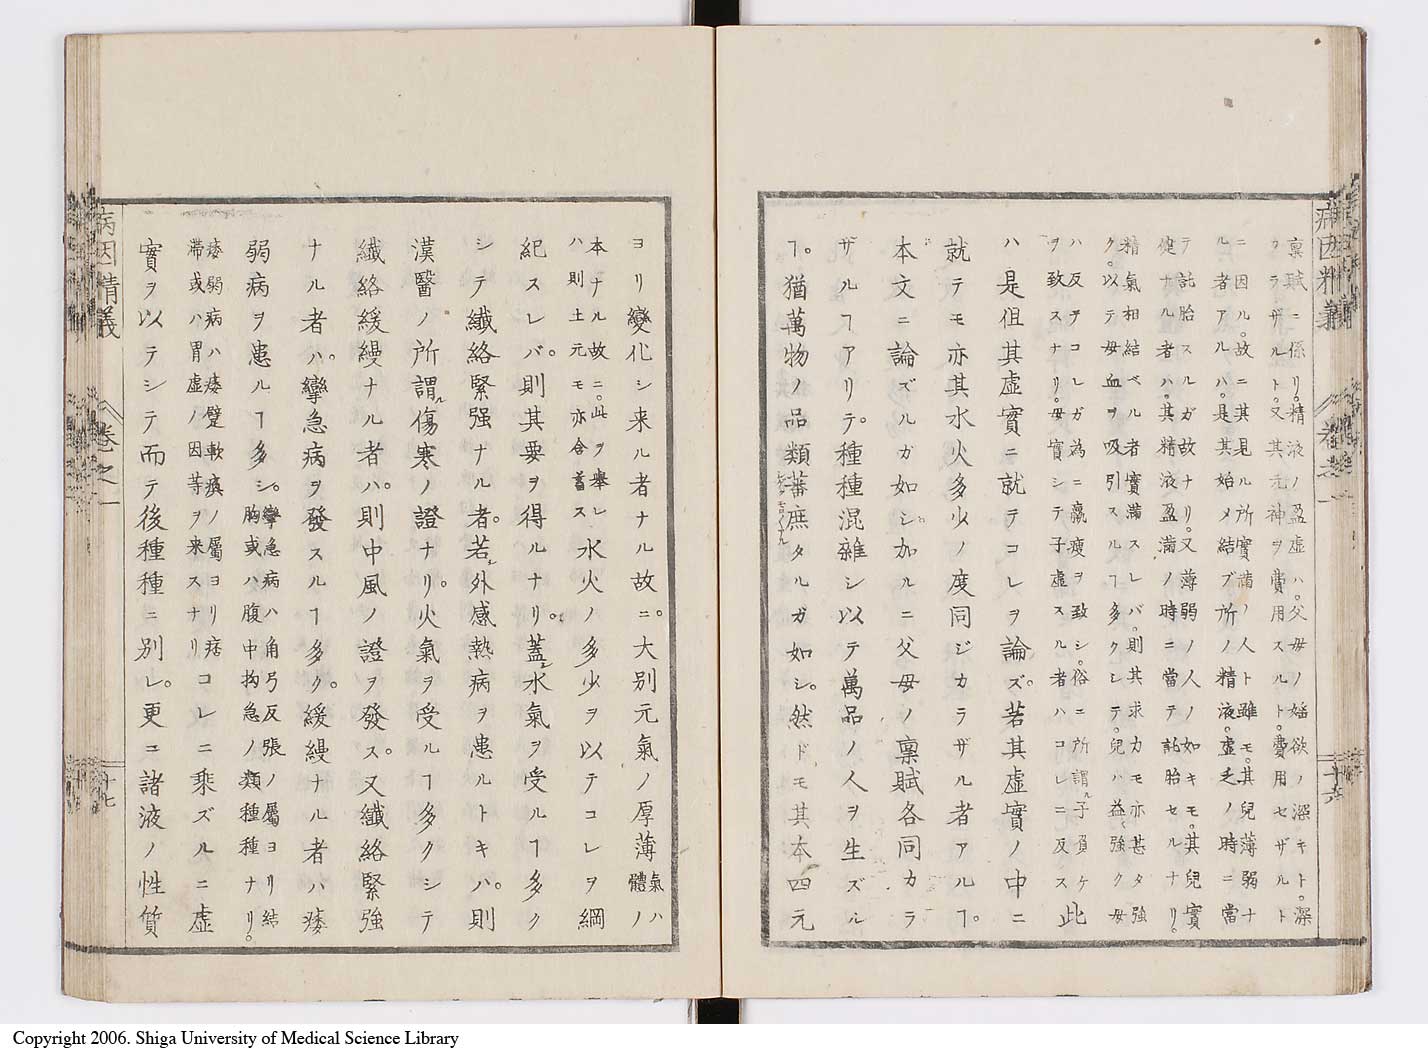 病因精義 卷之一 十六
稟賦ニ係リ。精液ノ盈虚ハ。父母ノ婬欲ノ深キト。深
カラザルト。又其元神ヲ費用スルト。費用セザルト
ニ因ル。故ニ其見ル所實満ノ人ト雖モ。其兒薄弱ナ
ル者アルハ。是其始メ結ブ所ノ精液。虚乏ノ時ニ當
テ託胎スルガ故ナリ。又薄弱ノ人ノ如キモ。其兒實
健ナル者ハ。其精液盈満ノ時ニ當テ託胎セルナリ。
精氣相結ベル者實満スレバ。則其求力モ亦甚タ強
ク。以テ母血ヲ吸引スルヿ多クシテ。兒ハ益〻強ク母
ハ反テコレガ為ニ羸瘦ヲ致シ。俗ニ所謂ル子負ケ
ヲ致スナリ。母實シテ子虚スル者ハコレニ反ス 此
ハ是但其虚實ニ就テコレヲ論ズ。若其虚實ノ中ニ
就テモ亦其水火多少ノ度同ジカラザル者アルヿ。
本文ニ論ズルガ如シ。加ルニ父母ノ稟賦各同カラ
ザルヿアリテ。種種混雜シ以テ萬品ノ人ヲ生ズル
ヿ。猶萬物ノ品類蕃庶タルガ如シ。然ドモ其本四元
ヨリ變化シ来ル者ナル故ニ。大別元氣ノ厚薄 氣ハ
體ノ
本ナル故ニ。此ヲ舉レ
ハ則土元モ亦含蓄ス 水火ノ多少ヲ以テコレヲ綱
紀スレバ。則其要ヲ得ルナリ。蓋シ水氣ヲ受ルヿ多ク
シテ纎絡緊强ナル者。若シ外感熱病ヲ患ルトキハ。則
漢醫ノ所謂ル傷寒ノ證ナリ。火氣ヲ受ルヿ多クシテ
纎絡緩縵ナル者ハ。則中風ノ證ヲ發ス。又纎絡緊強
ナル者ハ。攣急病ヲ發スルヿ多ク。緩縵ナル者ハ痿
弱病ヲ患ルヿ多シ。 攣急病ハ角弓反張ノ屬ヨリ結
胸或ハ腹中拘急ノ類種種ナリ。
痿弱病ハ痿躄軟瘨ノ屬ヨリ痞
滞或ハ胃虚ノ因等ヲ来スナリ コレニ乘ズルニ虚
實ヲ以テシテ而テ後種種ニ別レ。更ニ諸液ノ性質
病因精義 卷之一 十七
Copyright 2006. Shiga University of Medical Science Library